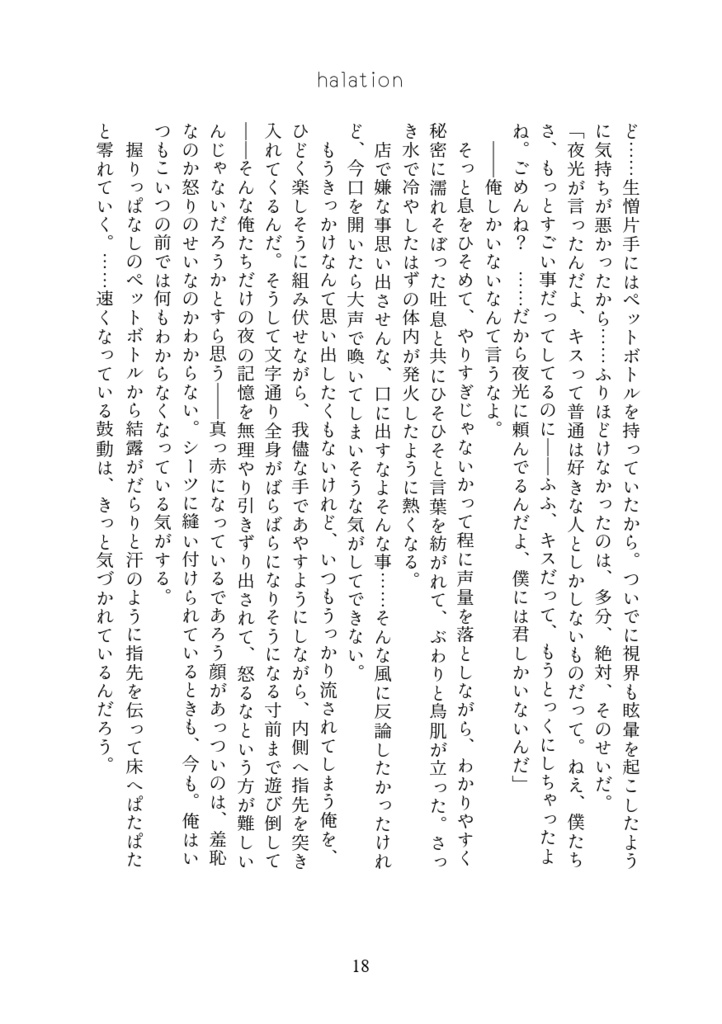 halation
ど……生憎片手にはペットボトルを持っていたから。ついでに視界も眩暈を起こしたよう
に気持ちが悪かったから……ふりほどけなかったのは、多分、絶対、そのせいだ。
「夜光が言ったんだよ、キスって普通は好きな人としかしないものだって。ねえ、僕たち
さ、もっとすごい事だってしてるのに――ふふ、キスだって、もうとっくにしちゃったよ
ね。ごめんね？　……だから夜光に頼んでるんだよ、僕には君しかいないんだ」
――俺しかいないなんて言うなよ。
そっと息をひそめて、やりすぎじゃないかって程に声量を落としながら、わかりやすく
秘密に濡れそぼった吐息と共にひそひそと言葉を紡がれて、ぶわりと鳥肌が立った。さっ
き水で冷やしたはずの体内が発火したように熱くなる。
店で嫌な事思い出させんな、口に出すなよそんな事……そんな風に反論したかったけれ
ど、今口を開いたら大声で喚いてしまいそうな気がしてできない。
もうきっかけなんて思い出したくもないけれど、いつもうっかり流されてしまう俺を、
ひどく楽しそうに組み伏せながら、我儘な手であやすようにしながら、内側へ指先を突き
入れてくるんだ。そうして文字通り全身がばらばらになりそうになる寸前まで遊び倒して
――そんな俺たちだけの夜の記憶を無理やり引きずり出されて、怒るなという方が難しい
んじゃないだろうかとすら思う――真っ赤になっているであろう顔があっついのは、羞恥
なのか怒りのせいなのかわからない。シーツに縫い付けられているときも、今も。俺はい
つもこいつの前では何もわからなくなっている気がする。
握りっぱなしのペットボトルから結露がだらりと汗のように指先を伝って床へぱたぱた
と零れていく。……速くなっている鼓動は、きっと気づかれているんだろう。
18